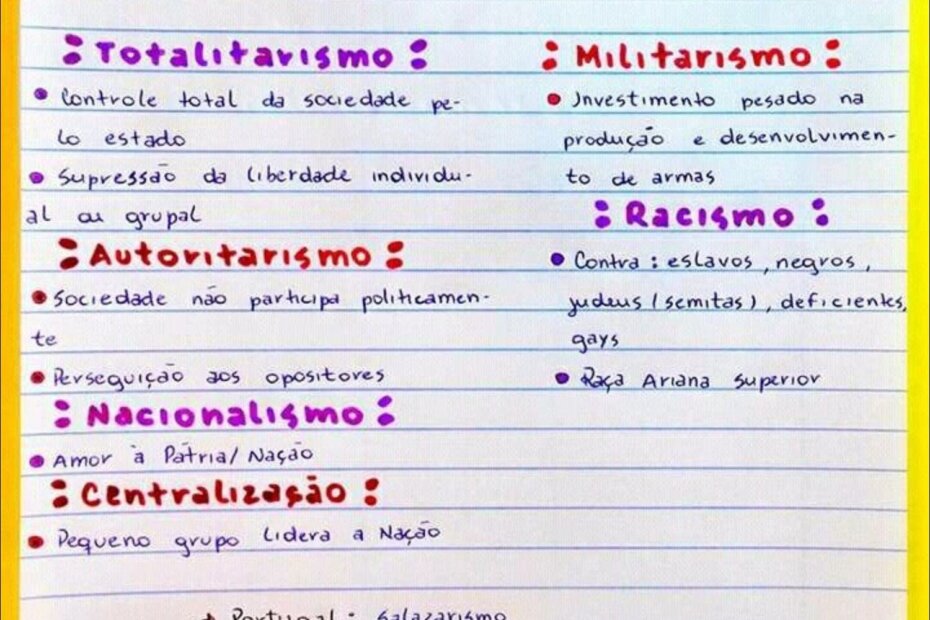 Totalitarismo
• Controle total da sociedade pe-
lo estado
• Supressão da liberdade individu-
al ou grupal
Autoritarismo
• Sociedade não participa politicamen-
te
• Perseguição aos opositores
Nacionalismo
• Amor à Pátria/Nação
Centralização
• Pequeno grupo lidera a Nação
Militarismo
• Investimento pesado na
produção e desenvolvimen-
to de armas
Racismo
• Contra: eslavos, negros,
judeus (semitas), deficientes,
gays
• Raça Ariana superior
Portugal: Salazarismo